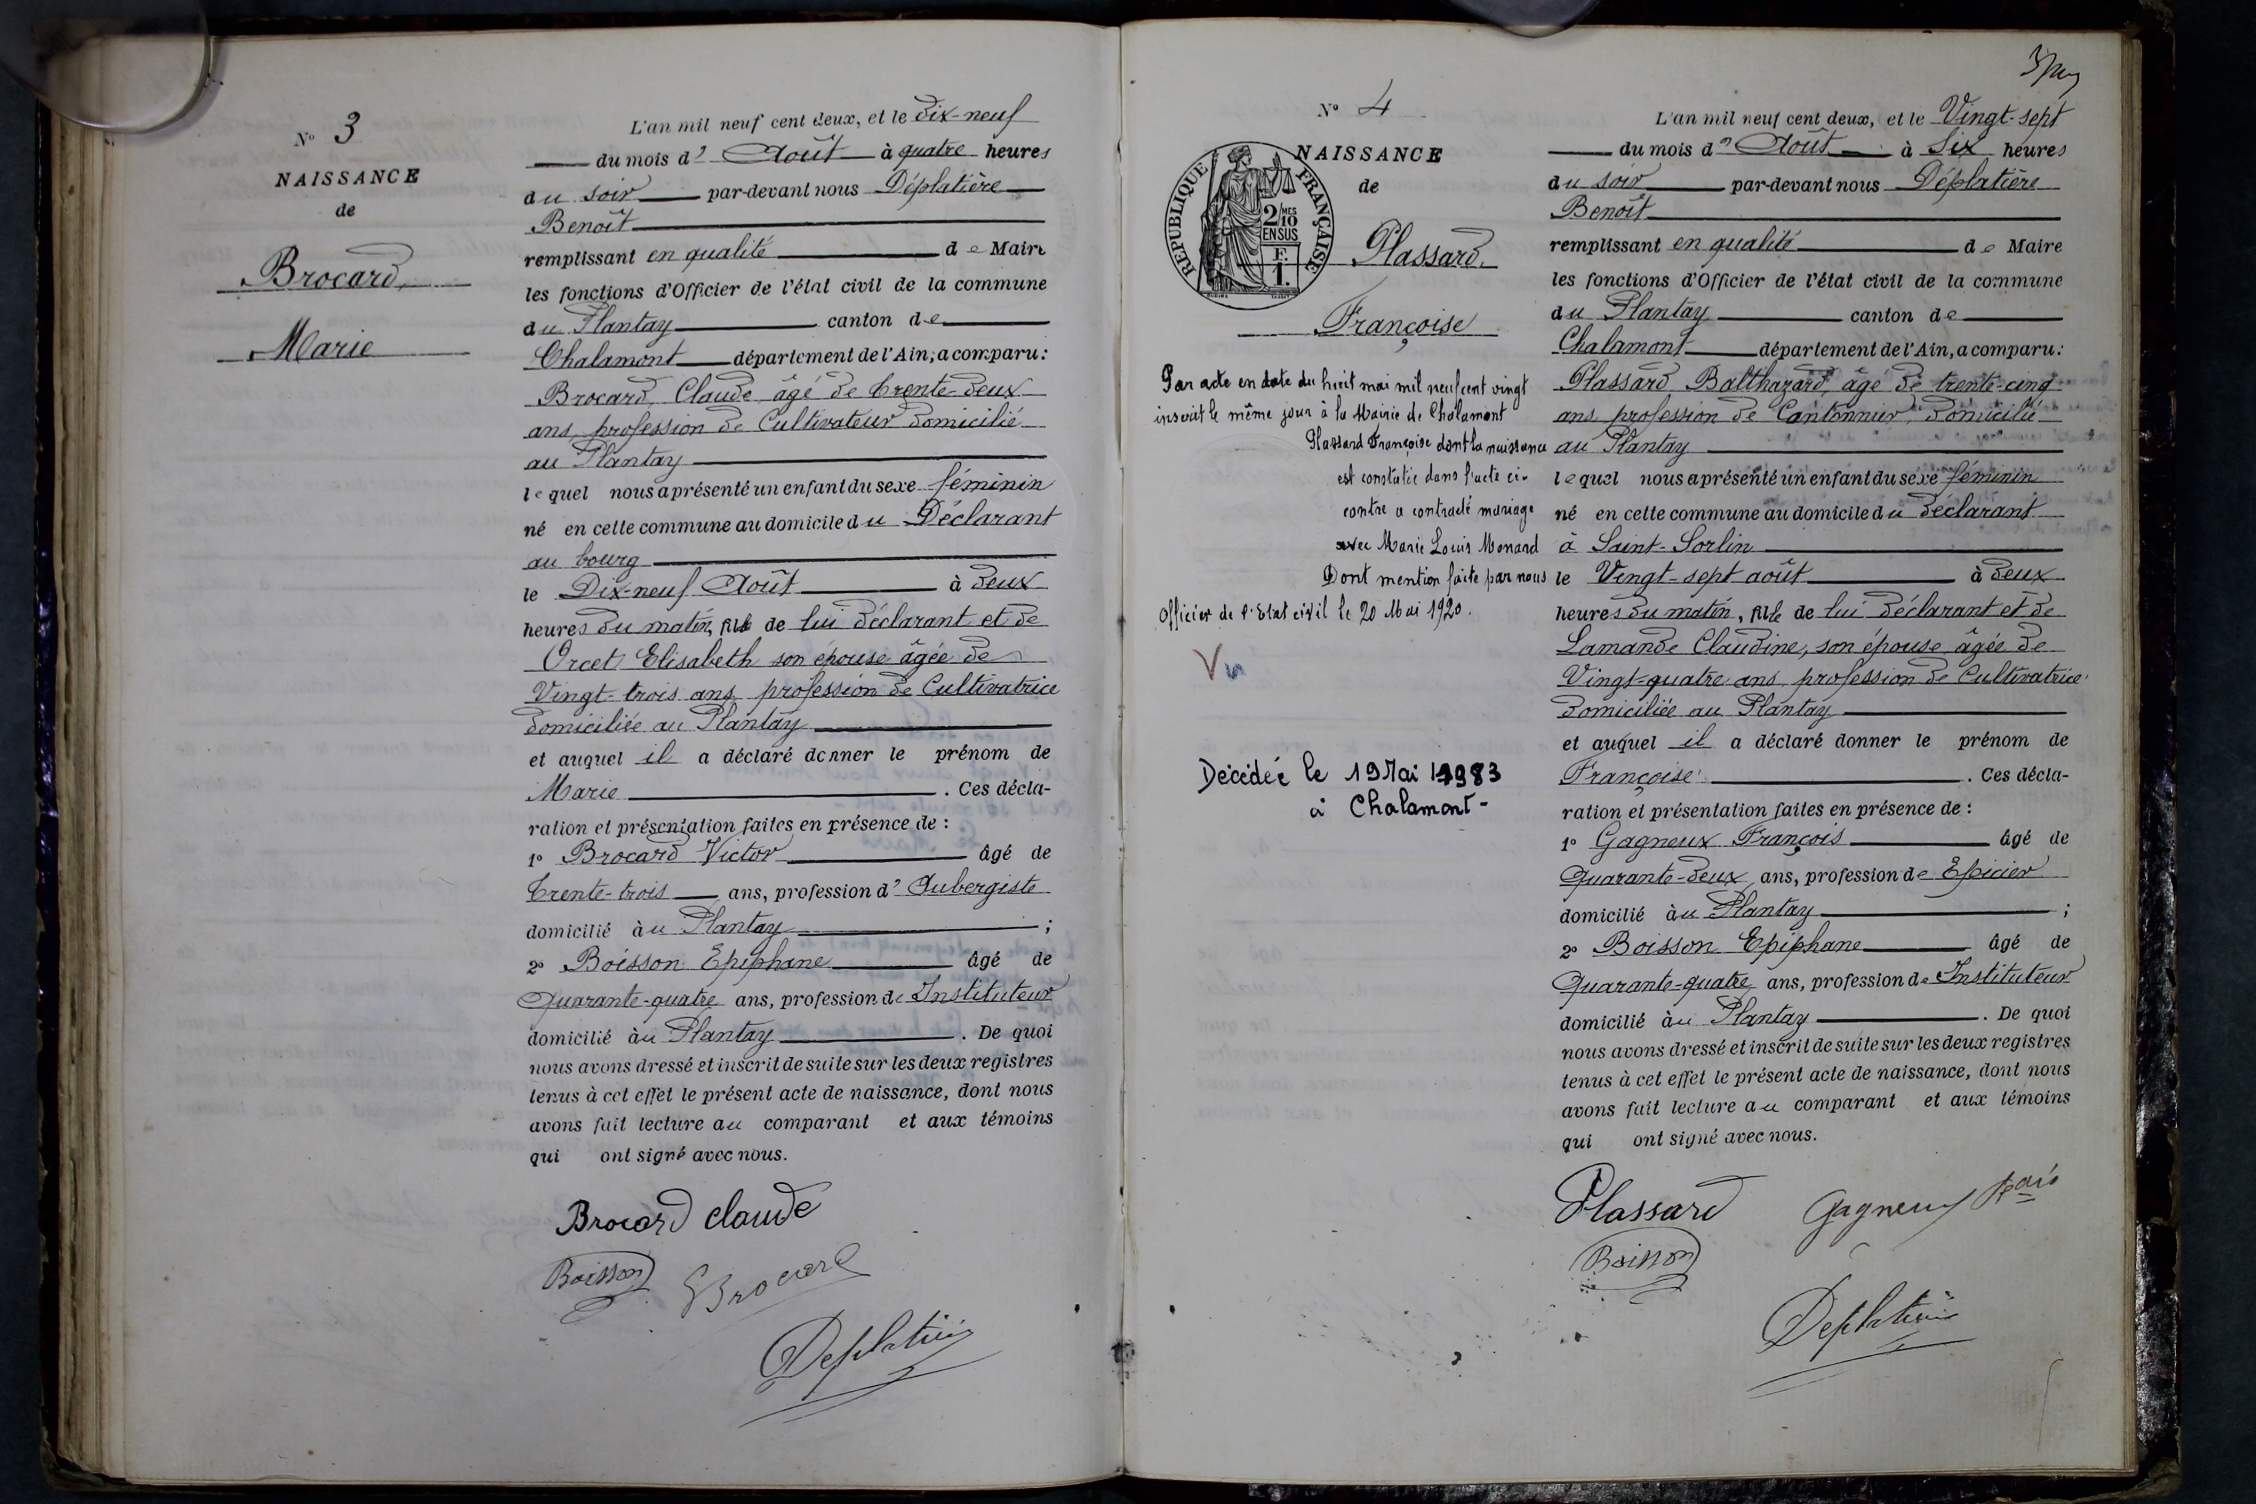 N° 3
NAISSANCE
de
Brocard,
Marie
L'an mil neuf cent deux, et le Dix-neuf
du mois d' Août à quatre heures
du soir par-devant nous Déplatière
Benoît
remplissant en qualité de Maire
les fonctions d'Officier de l'état civil de la commune
du Plantay canton de
Chalamont département de l'Ain, a comparu:
Brocard, Claude âgé de trente-deux
ans, profession de Cultivateur domicilié
au Plantay
lequel nous a présenté un enfant du sexe féminin
né en cette commune au domicile du Déclarant
au bourg
le Dix-neuf Août à deux
heures du matin, fille de lui déclarant et de
Orcet Elisabeth son épouse âgée de
Vingt-trois ans, profession de Cultivatrice
domiciliée au Plantay
et auquel il a déclaré donner le prénom de
Marie. Ces décla-
ration et présentation faites en présence de :
1° Brocard Victor âgé de
trente-trois ans, profession d' Aubergiste
domicilié àu Plantay ;
2° Boisson Epiphane âgé de
Quarante-quatre ans, profession de Instituteur
domicilié àu Plantay. De quoi
nous avons dressé et inscrit de suite sur les deux registres
tenus à cet effet le présent acte de naissance, dont nous
avons fait lecture au comparant et aux témoins
qui ont signé avec nous.
Brocard claude
Boisson Brocard
Deplatière
N° 4
NAISSANCE
de
REPUBLIQUE FRANÇAISE
2/10 MES
EN SUS
F.
1.
Plassard,
Françoise
Par acte en date du huit mai mil neuf cent vingt
inscrit le même jour à la Mairie de Chalamont
Plassard Françoise dont la naissance
est constatée dans l'acte ci-
contre a contracté mariage
avec Marie Louis Monard
Dont mention faite par nous
Officier de l'Etat civil le 20 Mai 1920.
Vu
Décédée le 19 Mai 1983
à Chalamont -
L'an mil neuf cent deux, et le Vingt-sept
du mois d' Août à Six heures
du soir par-devant nous Déplatière
Benoît
remplissant en qualité de Maire
les fonctions d'Officier de l'état civil de la commune
du Plantay canton de
Chalamont département de l'Ain, a comparu:
Plassard Balthazard, âgé de trente-cinq
ans, profession de Cantonnier, domicilié
au Plantay
lequel nous a présenté un enfant du sexe féminin
né en cette commune au domicile du déclarant
à Saint-Sorlin
le Vingt-sept août à deux
heures du matin, fille de lui déclarant et de
Lamande Claudine, son épouse âgée de
Vingt-quatre ans, profession de Cultivatrice
domiciliée au Plantay
et auquel il a déclaré donner le prénom de
Françoise. Ces décla-
ration et présentation faites en présence de :
1° Gagneux François âgé de
Quarante-deux ans, profession de Epicier
domicilié àu Plantay ;
2° Boisson Epiphane âgé de
Quarante-quatre ans, profession de Instituteur
domicilié àu Plantay. De quoi
nous avons dressé et inscrit de suite sur les deux registres
tenus à cet effet le présent acte de naissance, dont nous
avons fait lecture au comparant et aux témoins
qui ont signé avec nous.
Plassard Gagneux
Boisson
Deplatière